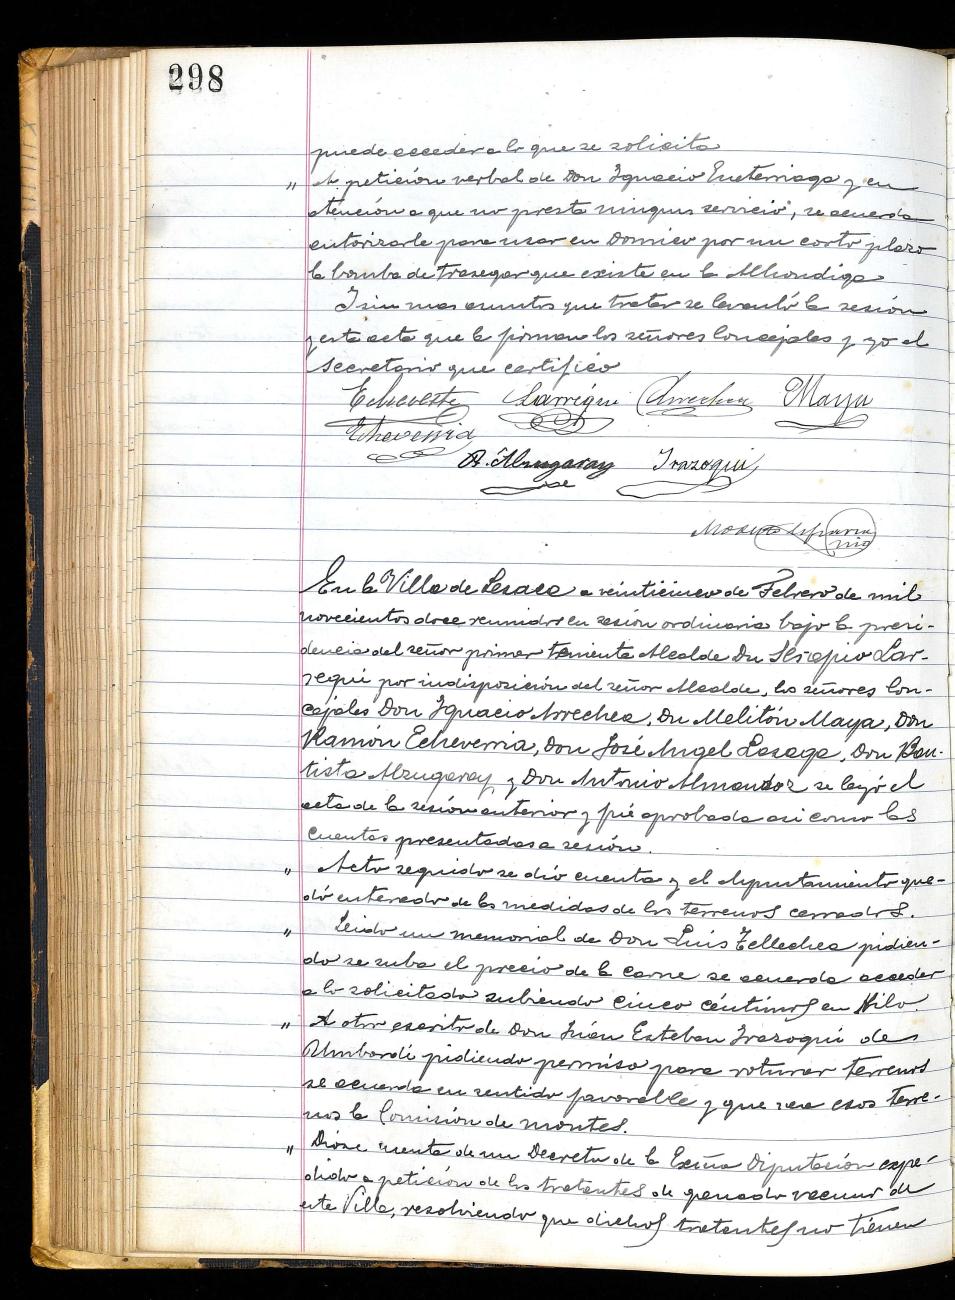 298
puede acceder a lo que se solicita
" A petición verbal de Don Ignacio Eneterriaga y en
atención a que no presta ningun servicio, se acuerda
autorizarle para usar en Domico por un corto plazo
la bomba de trasegar que existe en la Alhondiga
Y sin mas asuntos que tratar se levantó la sesión
y esta acta que la firman los señores Concejales y yo el
secretario que certifico
Echeveste Larregui Arrechea Maya
Echeverria
B. Alzugaray Irazoqui
En la Villa de Lesaca a veinticinco de Febrero de mil
novecientos doce reunidos en sesión ordinaria bajo la presi-
dencia del señor primer teniente Alcalde Dn Serapio Lar-
regui por indisposición del señor Alcalde, los señores Con-
cejales Don Ignacio Arrechea, Dn Melitón Maya, Don
Ramón Echeverria, Don José Angel Lasaga, Don Bau-
tista Alzugaray, y Don Antonio Almandoz se leyó el
acta de la sesión anterior y fué aprobada asi como las
cuentas presentadas a sesión.
" Acto seguido se dió cuenta y el Ayuntamiento que-
dó enterado de las medidas de los terrenos cerrados.
" Leido un memorial de Don Luis Tellechea pidien-
do se suba el precio de la carne se acuerda acceder
a lo solicitado subiendo cinco céntimos en Kilo.
" A otro escrito de Don Juán Esteban Irazoqui de
Umbordi pidiendo permiso para roturar terrenos
se acuerda en sentido favorable y que vea esos terre-
nos la Comisión de montes.
" Diose cuenta de un Decreto de la Exma Diputación expe-
dido a petición de los tratantes de ganado vacuno de
esta Villa, resolviendo que dichos tratantes no tienen